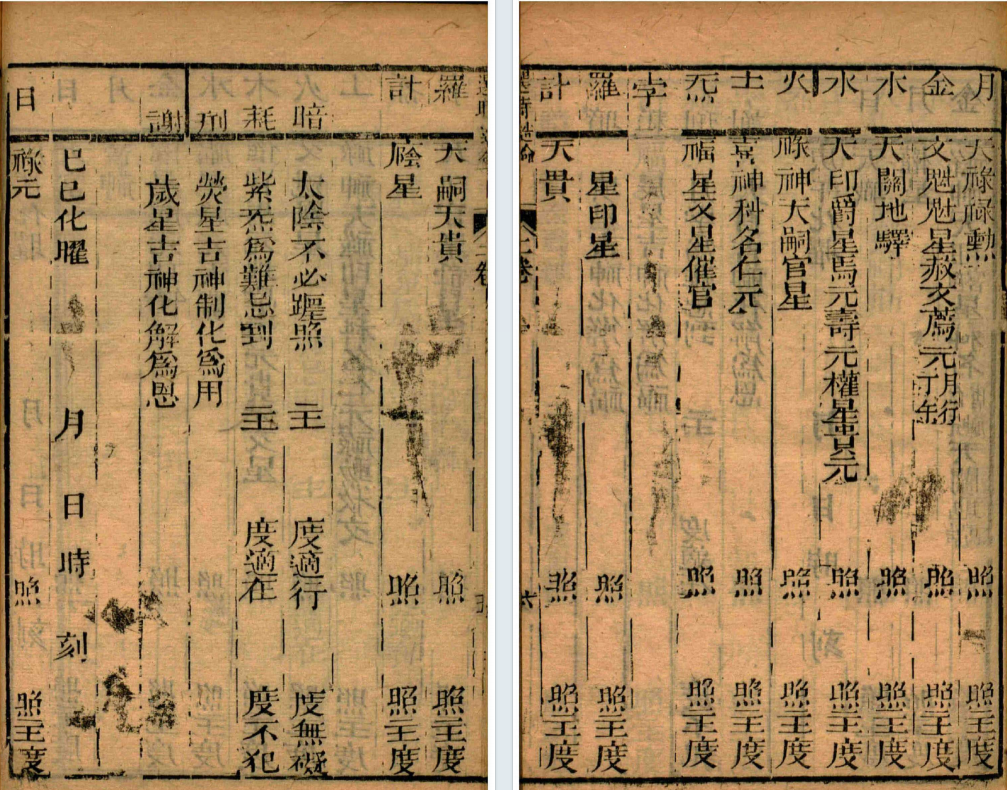 月 天祿祿勳 照 照主度
金 文魁魁星赦文薦元月符丁年 照 照主度
水 天關地驛 照 照主度
水 天印爵星馬元壽元權星貫元 照 照主度
火 祿神天嗣官星 照 照主度
土 喜神科名仁元 照 照主度
炁 福星文星催官 照 照主度
孛
羅 星印星 照 照主度
計 天貫 照 照主度
上卷 六
羅 天嗣天貴 照 照主度
計 廕星 照 照主度
暗 太陰不必躔照 主 度適行 度無礙
耗 紫炁為難忌到 主 度適在 度不犯
刑 熒星吉神制化為用
謝 歲星吉神化解為恩
己巳化曜 月 日 時 刻
日 祿元 照 照主度